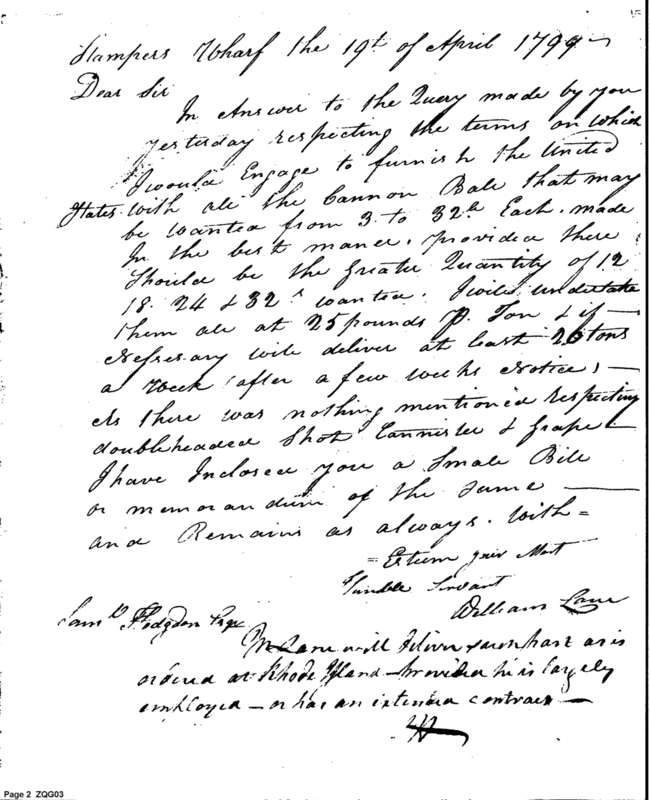 Stampers Wharf the 19th of April 1799
Dear Sir
In Answer to the Query made by you
yesterday respecting the terms on which
I would Engage to furnish the United
States with all the Cannon Ball that may
be wanted from 3 to 32lb Each. made
In the best maner, provided there
Should be the Greater Quantity of 12
18. 24 & 32s wanted. I will undertake
them all at 25 pounds p. Ton & if
Nessesary will deliver at least 20 tons
a Week after a few weeks Notice,
As there was nothing mentioned respecting
doubleheaded Shot Cannister & Grape
I have Inclosed you a Small Bill
or memorandum of the Same
and Remains as always. With =
= Esteem your Most
Humble Servant
William Lane
Saml Hodgdon Esqr
Mr Lane will deliver such part as is
ordered at Rhode Island - provided he is largely
employed - or has an extended contract -